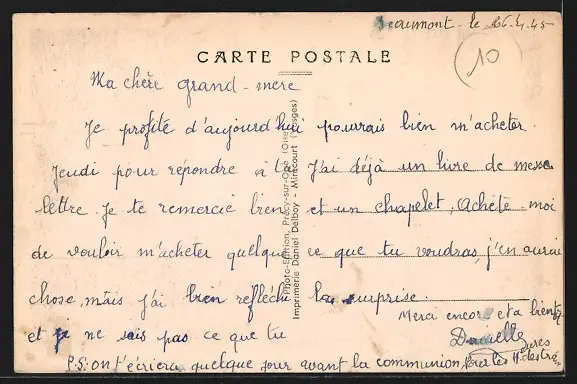 Beaumont - le 26.4.45
10
CARTE POSTALE
Ma chère grand-mère
Je profite d'aujourd'hui
Jeudi pour répondre à ta
lettre. Je te remercie bien
de vouloir m'acheter quelque
chose, mais j'ai bien réfléchi
et je ne sais pas ce que tu
pourrais bien m'acheter.
J'ai déjà un livre de messe
et un chapelet, Achète-moi
ce que tu voudras, j'en aurai
la surprise.
Merci encore et a bientôt
Danielle
P.S: on t'écriera quelque jour avant la communion pour les
Photo-Edition, Précy-sur-Oise (Oise)
Imprimerie Daniel Delboy - Mirecourt (Vosges)